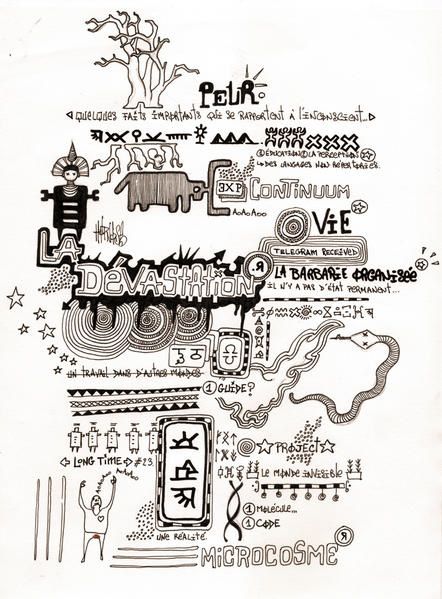 PEUR.
QUELQUES FAITS IMPORTANTS QUI SE RAPPORTENT À L'INCONSCIENT...
① ÉDUCATION ① LA PERCEPTION
↳ DES LANGAGES NON RÉPERTORIÉS.
EXP CONTINUUM
AoAoAoo
VIE
TELEGRAM RECEIVED
LA DÉVASTATION R
LA BARBARIE ORGANISÉE
IL N'Y A PAS D'ÉTAT PERMANENT...
UN TRAVAIL DANS D'AUTRES MONDES
① GUIDE?
PROJECT
LONG TIME #23.
LE MONDE INVISIBLE
① MOLÉCULE...
① CODE
UNE RÉALITÉ.
MICROCOSME R